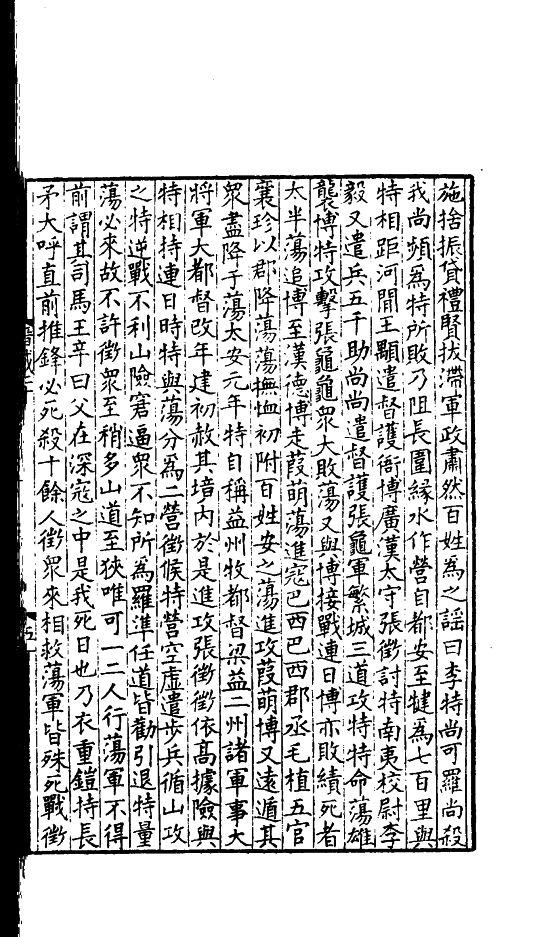 施捨振貸禮賢拔滯軍政肅然百姓爲之謡曰李特尚可羅尚殺
我尚頻爲特所敗乃阻長圍緣水作營自都安至犍爲七百里與
特相距河間王顒遣督護衙博廣漢太守張徵討特南夷校尉李
毅又遣兵五千助尚尚遣督護張龜軍繁城三道攻特特命蕩雄
襲博特攻擊張龜龜衆大敗蕩又與博接戰連日博亦敗績死者
太半蕩追博至漢德博走葭萌蕩進寇巴西巴西郡丞毛植五官
襄珍以郡降蕩蕩撫恤初附百姓安之蕩進攻葭萌博又遠遁其
衆盡降于蕩太安元年特自稱益州牧都督梁益二州諸軍事大
將軍大都督改年建初赦其境内於是進攻張徵徵依髙據險與
特相持連日時特與蕩分爲二營徵候特營空虚遣步兵循山攻
之特逆戰不利山險窘逼衆不知所爲羅準任道皆勸引退特量
蕩必來故不許徵衆至稍多山道至狹唯可一二人行蕩軍不得
前謂其司馬王辛曰父在深寇之中是我死日也乃衣重鎧持長
矛大呼直前推鋒必死殺十餘人徵衆來相救蕩軍皆殊死戰徵
五